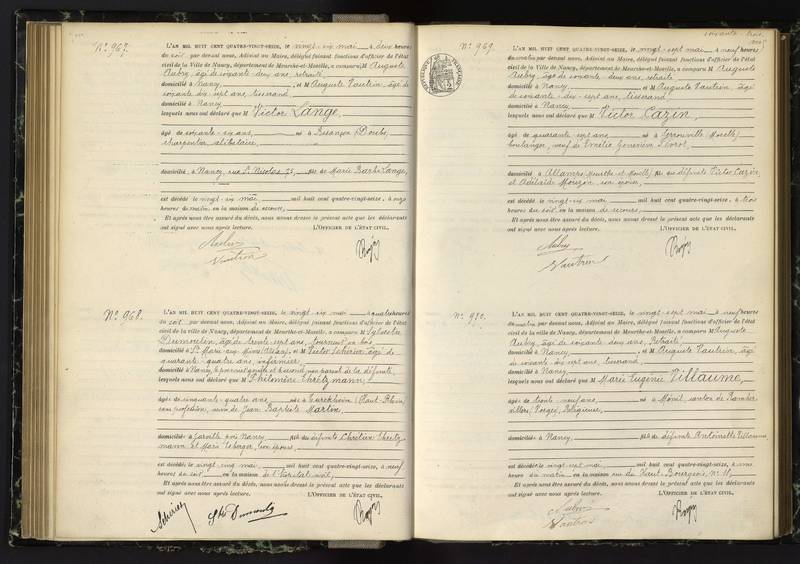 Nº 967.
L'AN MIL HUIT CENT QUATRE-VINGT-SEIZE, le vingt-six mai à deux heures
du soir par devant nous, Adjoint au Maire, délégué faisant fonctions d'officier de l'état
civil de la Ville de Nancy, département de Meurthe-et-Moselle, a comparu M Auguste
Aubry, âgé de soixante deux ans, retraité
domicilié à Nancy, et M Auguste Vautrin, âgé de
soixante dix-sept ans, tisserand
domicilié à Nancy
lesquels nous ont déclaré que M Victor Lange,
âgé de soixante-six ans, né à Besançon (Doubs)
charpentier, célibataire,
domicilié à Nancy, rue St Nicolas 25, fils de Marie Barbe Lange,
est décédé le vingt-six mai mil huit cent quatre-vingt-seize, à onze
heures du matin, en la maison de secours,
Et après nous être assuré du décès, nous avons dressé le présent acte que les déclarants
ont signé avec nous après lecture. L'OFFICIER DE L'ÉTAT CIVIL,
Aubry
Vautrin
Nº 968.
L'AN MIL HUIT CENT QUATRE-VINGT-SEIZE, le vingt-six mai à quatre heures
du soir par devant nous, Adjoint au Maire, délégué faisant fonctions d'officier de l'état
civil de la ville de Nancy, département de Meurthe-et-Moselle, a comparu M Sylvestre
Dumoulin, âgé de trente-sept ans, tourneur en bois
domicilié à Ste Marie-aux-Mines et M Victor Scherier, âgé de
quarante-quatre ans, infirmier
domicilié à Nancy, le premier et le second non parent de la défunte,
lesquels nous ont déclaré que M Philomène Chrétzmann,
âgée de cinquante-quatre ans née à Turckheim (Haut-Rhin)
sans profession, veuve de Jean Baptiste Martin
domiciliée à Jarville près Nancy fille de défunts Chrétien Chretz-
mann et Marie, son épouse,
est décédée le vingt-six mai mil huit cent quatre-vingt-seize, à neuf
heures du soir, en la maison de l'hôpital civil,
Et après nous être assuré du décès, nous avons dressé le présent acte que les déclarants
ont signé avec nous après lecture. L'OFFICIER DE L'ÉTAT CIVIL,
Dumoulin
soixante trois
Nº 969.
RÉPUBLIQUE FRANÇAISE
L'AN MIL HUIT CENT QUATRE-VINGT-SEIZE, le vingt-sept mai à neuf heures
du matin par devant nous, Adjoint au Maire, délégué faisant fonctions d'officier de l'état
civil de la Ville de Nancy, département de Meurthe-et-Moselle, a comparu M Auguste
Aubry, âgé de soixante-deux ans, retraité
domicilié à Nancy, et M Auguste Vautrin, âgé
de soixante-dix-sept ans, tisserand
domicilié à Nancy
lesquels nous ont déclaré que M Victor Cazin,
âgé de quarante-sept ans né à Serrouville (Moselle)
boulanger, veuf de Emélie Geneviève
domicilié à Allamps (Meurthe-et-Moselle) fils de défunts Victor Cazin,
et Adélaïde Morizon, son épouse,
est décédé le vingt-six mai mil huit cent quatre-vingt-seize, à trois
heures du soir en la maison de secours,
Et après nous être assuré du décès, nous avons dressé le présent acte que les déclarants
ont signé avec nous après lecture. L'OFFICIER DE L'ÉTAT CIVIL,
Aubry
Vautrin
Nº 970.
L'AN MIL HUIT CENT QUATRE-VINGT-SEIZE, le vingt-sept mai à neuf heures
du matin par devant nous, Adjoint au Maire, délégué faisant fonctions d'officier de l'état
civil de la ville de Nancy, département de Meurthe-et-Moselle, a comparu M Auguste
Aubry, âgé de soixante-deux ans, Retraité
domicilié à Nancy, et M Auguste Vautrin, âgé
de soixante dix sept ans, tisserand
domicilié à Nancy
lesquels nous ont déclaré que M Marie Eugénie Villaume,
âgée de trente-neuf ans née à Ménil, canton de Rambervillers
(Vosges), Religieuse,
domiciliée à Nancy, fille de défunte Antoinette Villaume,
est décédée le vingt-sept mai, mil huit cent quatre-vingt-seize, à une
heure du matin en la maison rue du Haut-Bourgeois, nº 11,
Et après nous être assuré du décès, nous avons dressé le présent acte que les déclarants
ont signé avec nous après lecture. L'OFFICIER DE L'ÉTAT CIVIL,
Aubry
Vautrin